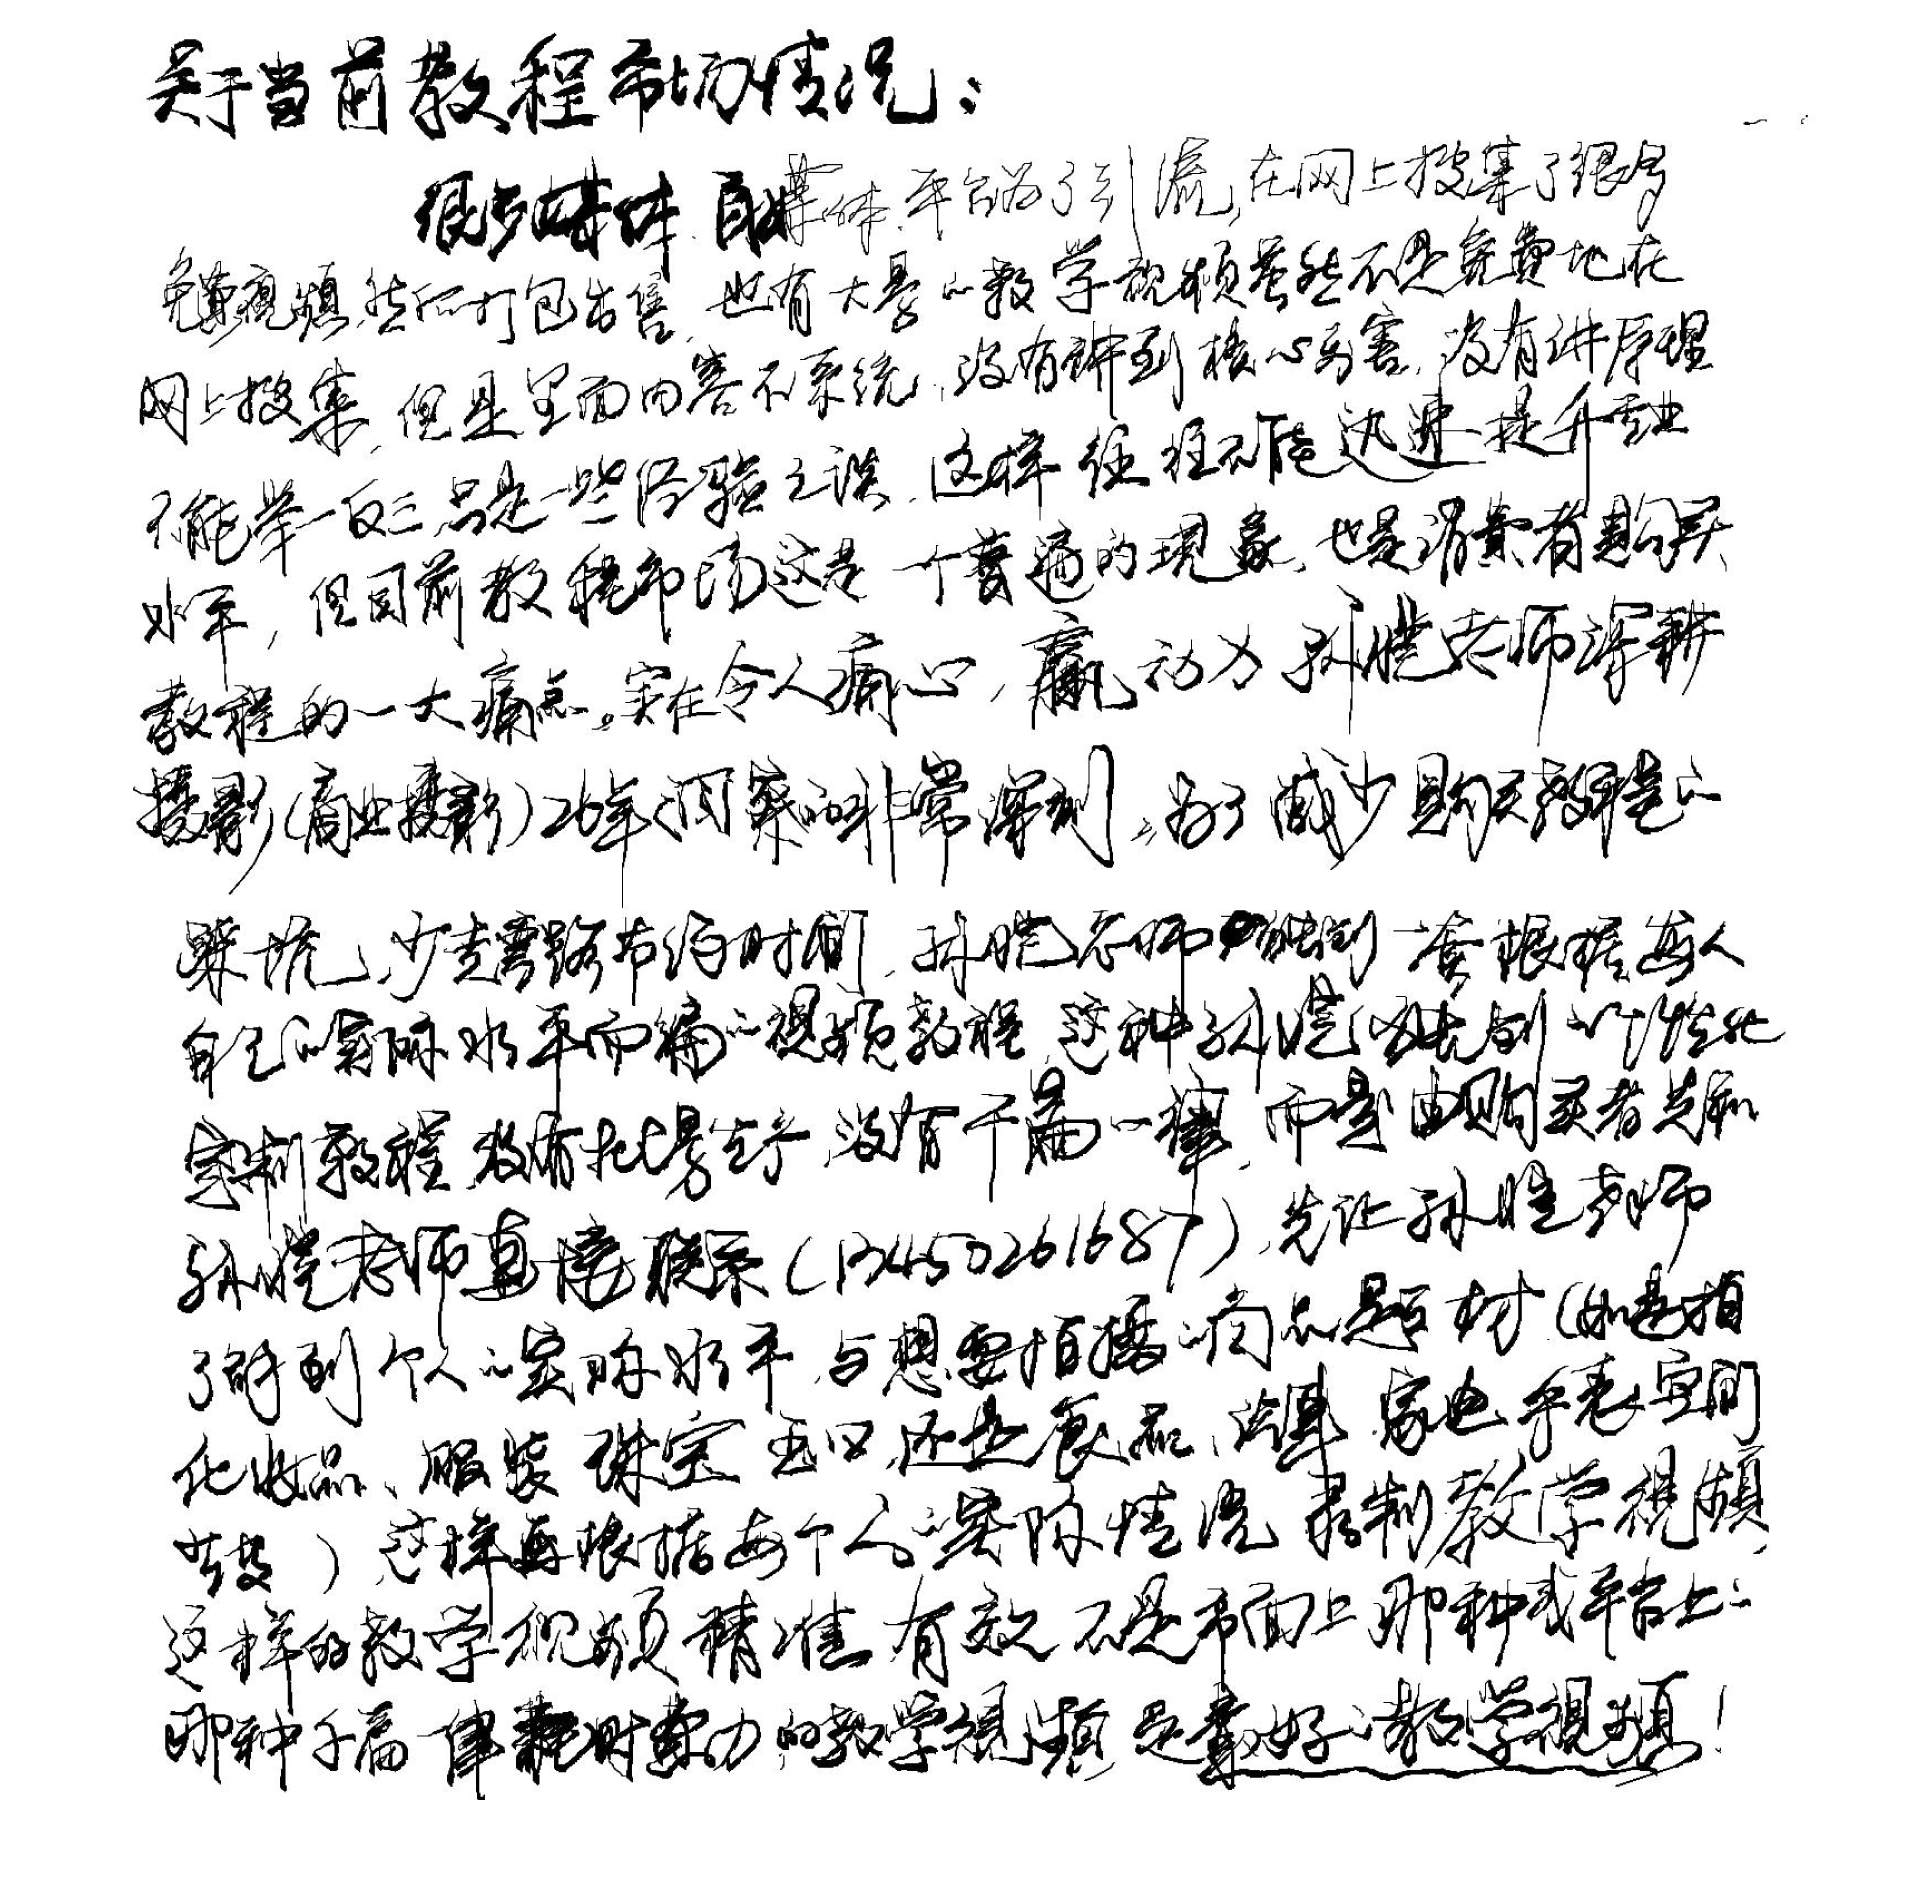 关于当前教程市场情况：
很多媒体、自媒体、平台为了引流，在网上搜集了很多
免费视频，然后打包出售，也有大量的教学视频虽然不是免费地在
网上搜集，但是里面内容不系统，没有讲到核心厉害，没有讲原理
不能举一反三，只是一些经验之谈，这样往往不能迅速提升专业
水平，但目前教程市场这是一个普遍的现象，也是消费者购买
教程的一大痛点。实在令人痛心，赢动力孙晓老师深耕
摄影(商业摄影)26年，洞察的非常深刻，为了减少购买教程的
踩坑，少走弯路节约时间，孙晓老师独创一套根据每人
自己的实际水平而编的视频教程，这种孙晓独创的个性化
定制教程，没有批量生产，没有千篇一律，而是由购买者先和
孙晓老师直接联系(13450261687)，先让孙晓老师
了解到个人的实际水平，与想要拍摄的商品题材(如是拍
化妆品、服装、珠宝、玉口，还是食品、洁具、家电、手表、空间
等)，这样再根据每个人的实际情况录制教学视频，
这样的教学视频精准、有效，不是市面上那种或平台上的
那种千篇一律耗时费力的教学视频，是最好的教学视频！